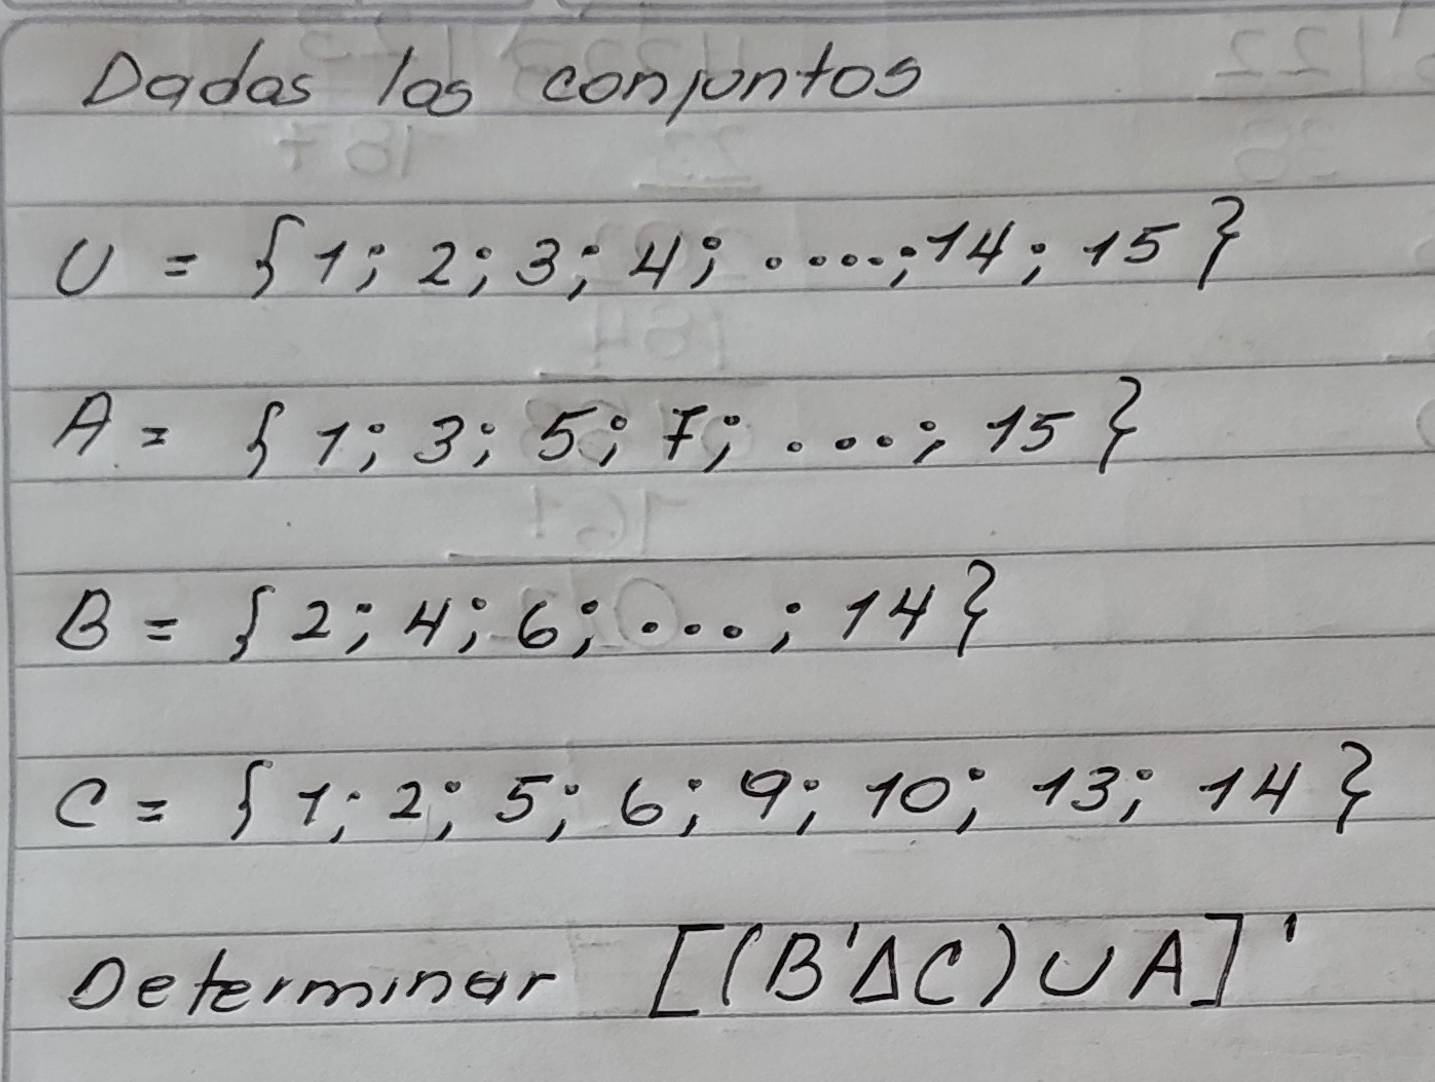 Dadas los conjuntos
U = {1; 2; 3; 4; ....; 14; 15}
A = {1; 3; 5; 7; ....; 15}
B = {2; 4; 6; ...; 14}
C = {1; 2; 5; 6; 9; 10; 13; 14}
Determinar [(B'ΔC)∪A]'